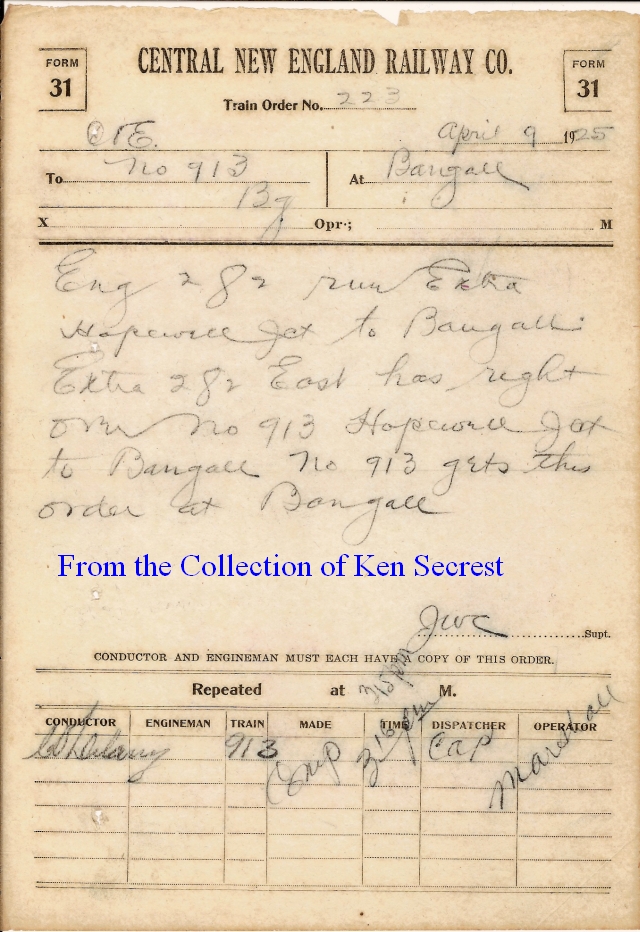 FORM 31
CENTRAL NEW ENGLAND RAILWAY CO.
FORM 31
Train Order No. 223
C&E. April 9 1925
To No 913 At Bangall
Bg
X Opr.; M
Eng 282 run Extra
Hopewell Jct to Bangall.
Extra 282 East has right
over No 913 Hopewell Jct
to Bangall No 913 gets this
order at Bangall
From the Collection of Ken Secrest
JWC Supt.
CONDUCTOR AND ENGINEMAN MUST EACH HAVE A COPY OF THIS ORDER.
Repeated at 315 pm M.
CONDUCTOR ENGINEMAN TRAIN MADE TIME DISPATCHER OPERATOR
913 Comp 316 pm CAP Marshall